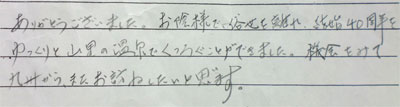 ありがとうございました。お陰様で、俗世を離れ、結婚40周年を
ゆっくりと山里の温泉でくつろぐことができました。機会をみて
九州から、またお訪ねしたいと思います。